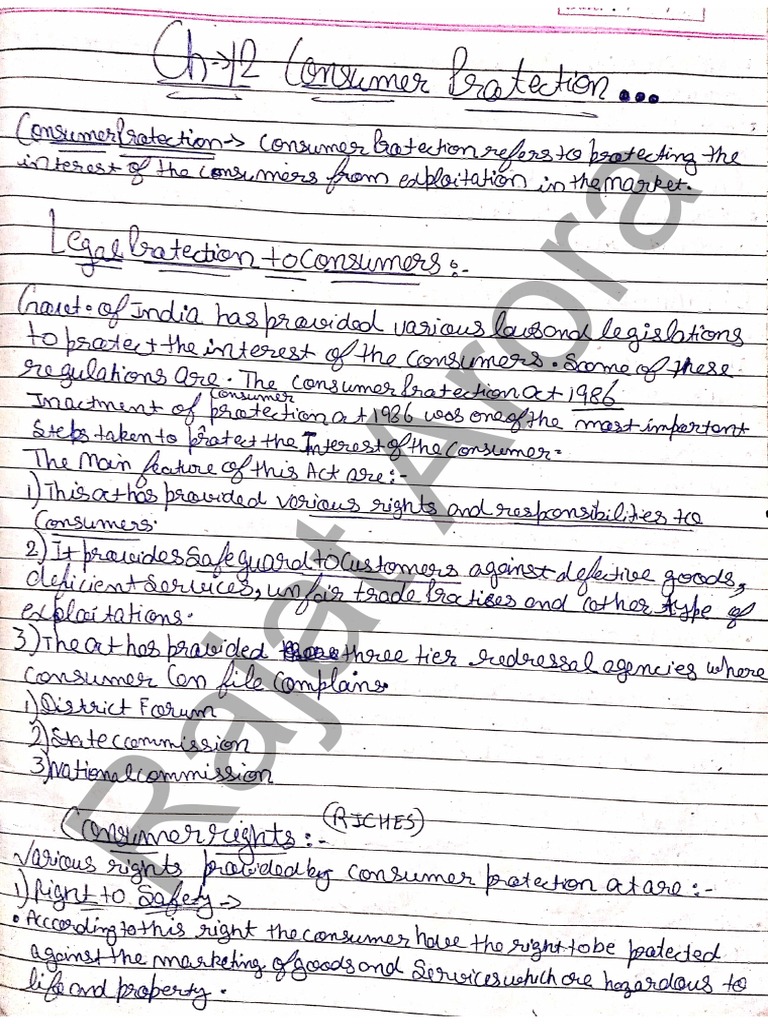 Ch→12 Consumer Protection...
Consumer Protection → Consumer Protection refers to protecting the
interest of the consumers from exploitation in the market.
Legal Protection to Consumers:-
Govt. of India has provided various laws and legislations
to protect the interest of the consumers. Some of these
regulations are. The consumer Protection act 1986
Inactment of consumer protection act 1986 was one of the most important
steps taken to protect the Interest of the consumer.
The Main feature of this Act are:-
1) This act has provided various rights and responsibilities to
Consumers.
2) It provides safeguard to customers against defective goods,
deficient services, unfair trade Practises and other type of
exploitations.
3) The act has provided three tier redressal agencies where
consumer can file complains.
1) District Forum
2) State commission
3) National commission
(RICHES)
Consumer rights:-
Various rights provided by consumer protection act are:-
1) Right to Safety →
• According to this right the consumer have the right to be protected
against the marketing of goods and services which are hazardous to
life and property.
Rajat Arora